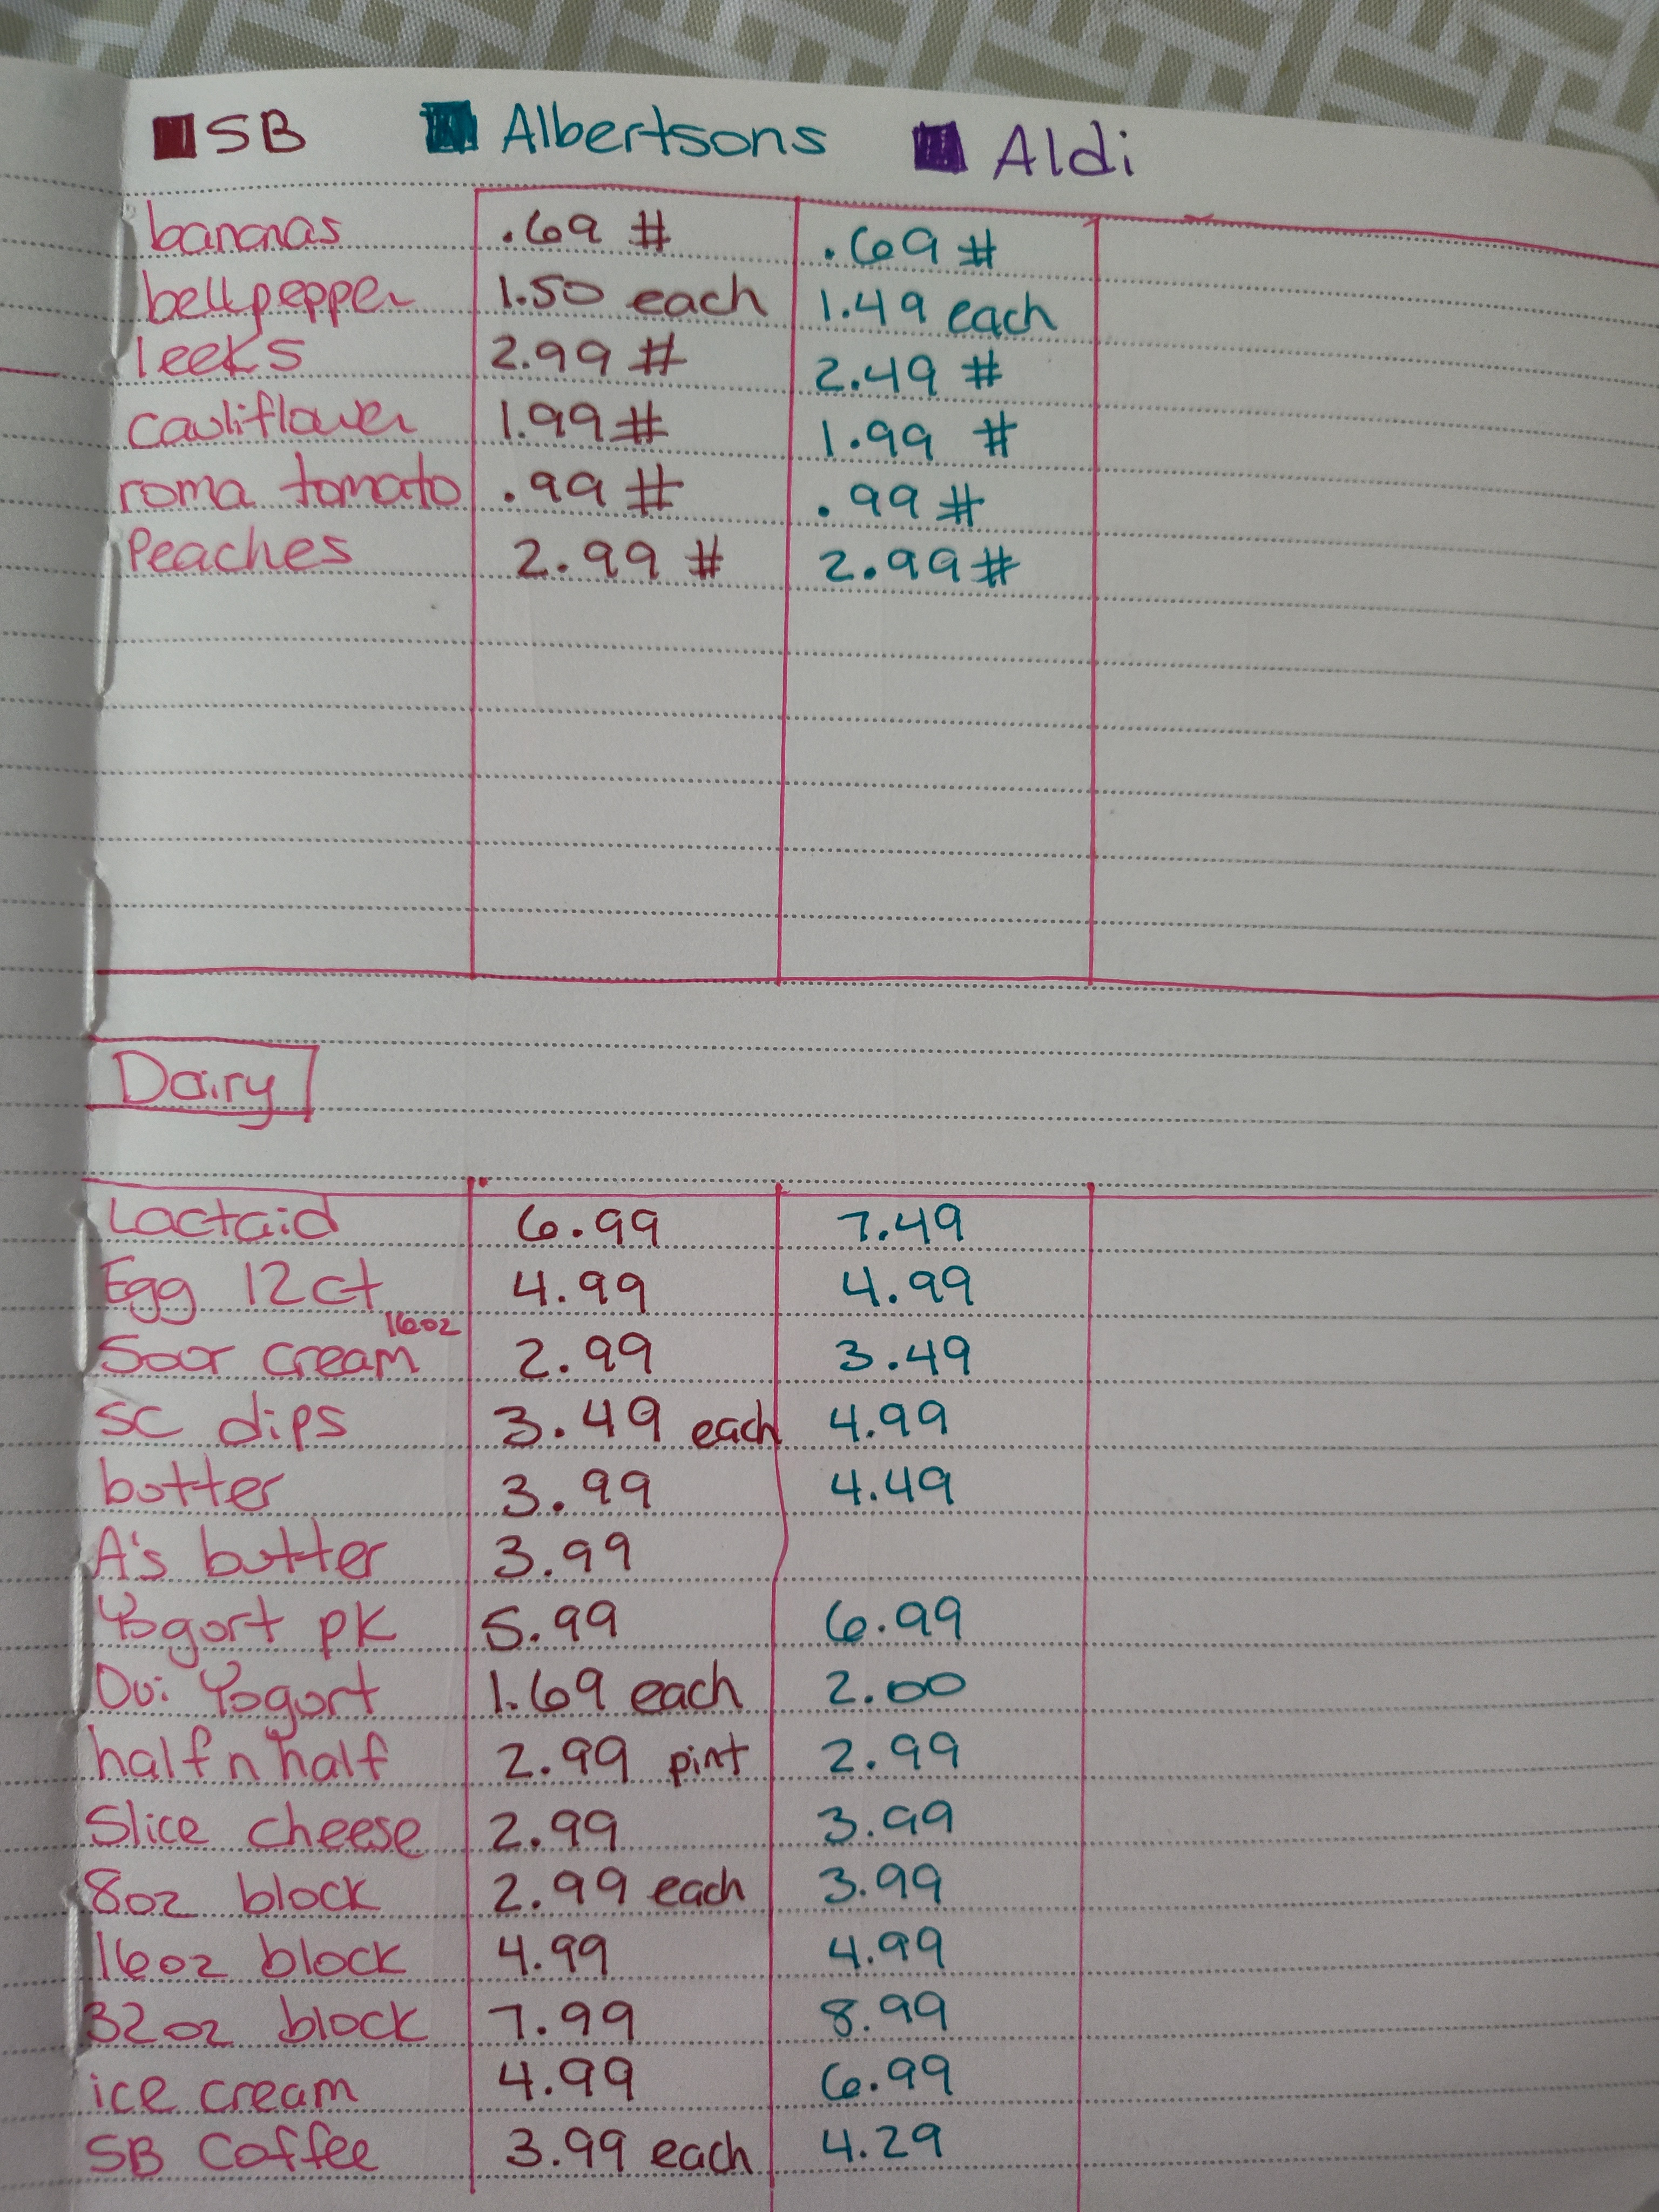 SB Albertsons Aldi
bananas .69 # .69 #
bellpepper 1.50 each 1.49 each
leeks 2.99 # 2.49 #
cauliflower 1.99 # 1.99 #
roma tomato .99 # .99 #
Peaches 2.99 # 2.99 #
Dairy
Lactaid 6.99 7.49
Egg 12ct 4.99 4.99
16oz
Sour cream 2.99 3.49
SC dips 3.49 each 4.99
butter 3.99 4.49
A's butter 3.99
Yogurt pk 5.99 6.99
Oui Yogurt 1.69 each 2.00
half n half 2.99 pint 2.99
Slice cheese 2.99 3.99
8oz block 2.99 each 3.99
16oz block 4.99 4.99
32oz block 7.99 8.99
ice cream 4.99 6.99
SB Coffee 3.99 each 4.29